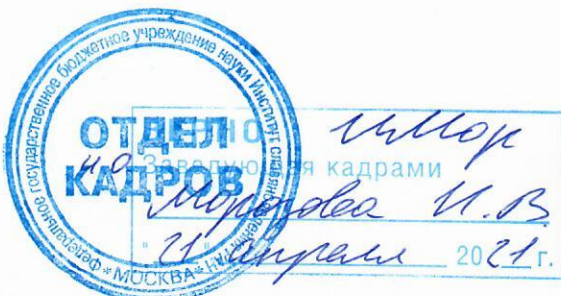 Федеральное государственное бюджетное учреждение науки Институт славяноведения РАН
* МОСКВА *
ОТДЕЛ
КАДРОВ
ВЕРНО
и.о. Заведующая кадрами
Морозова И. В
"21" апреля 2021 г.